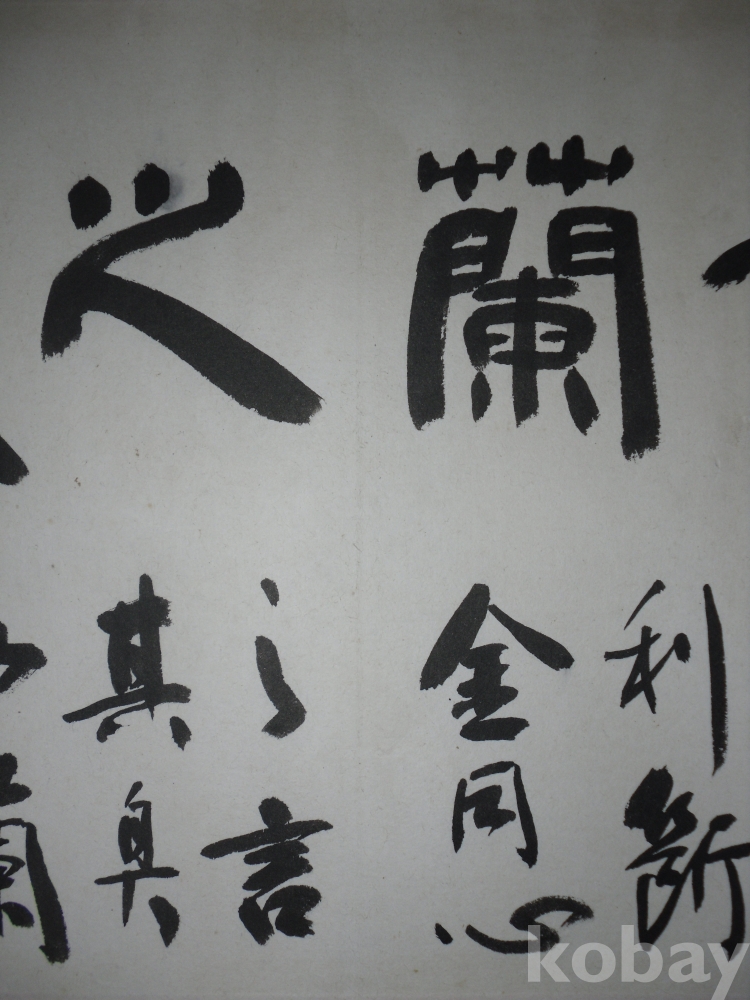 蘭之
利斷
金同心
之言
其臭
蘭
kobay